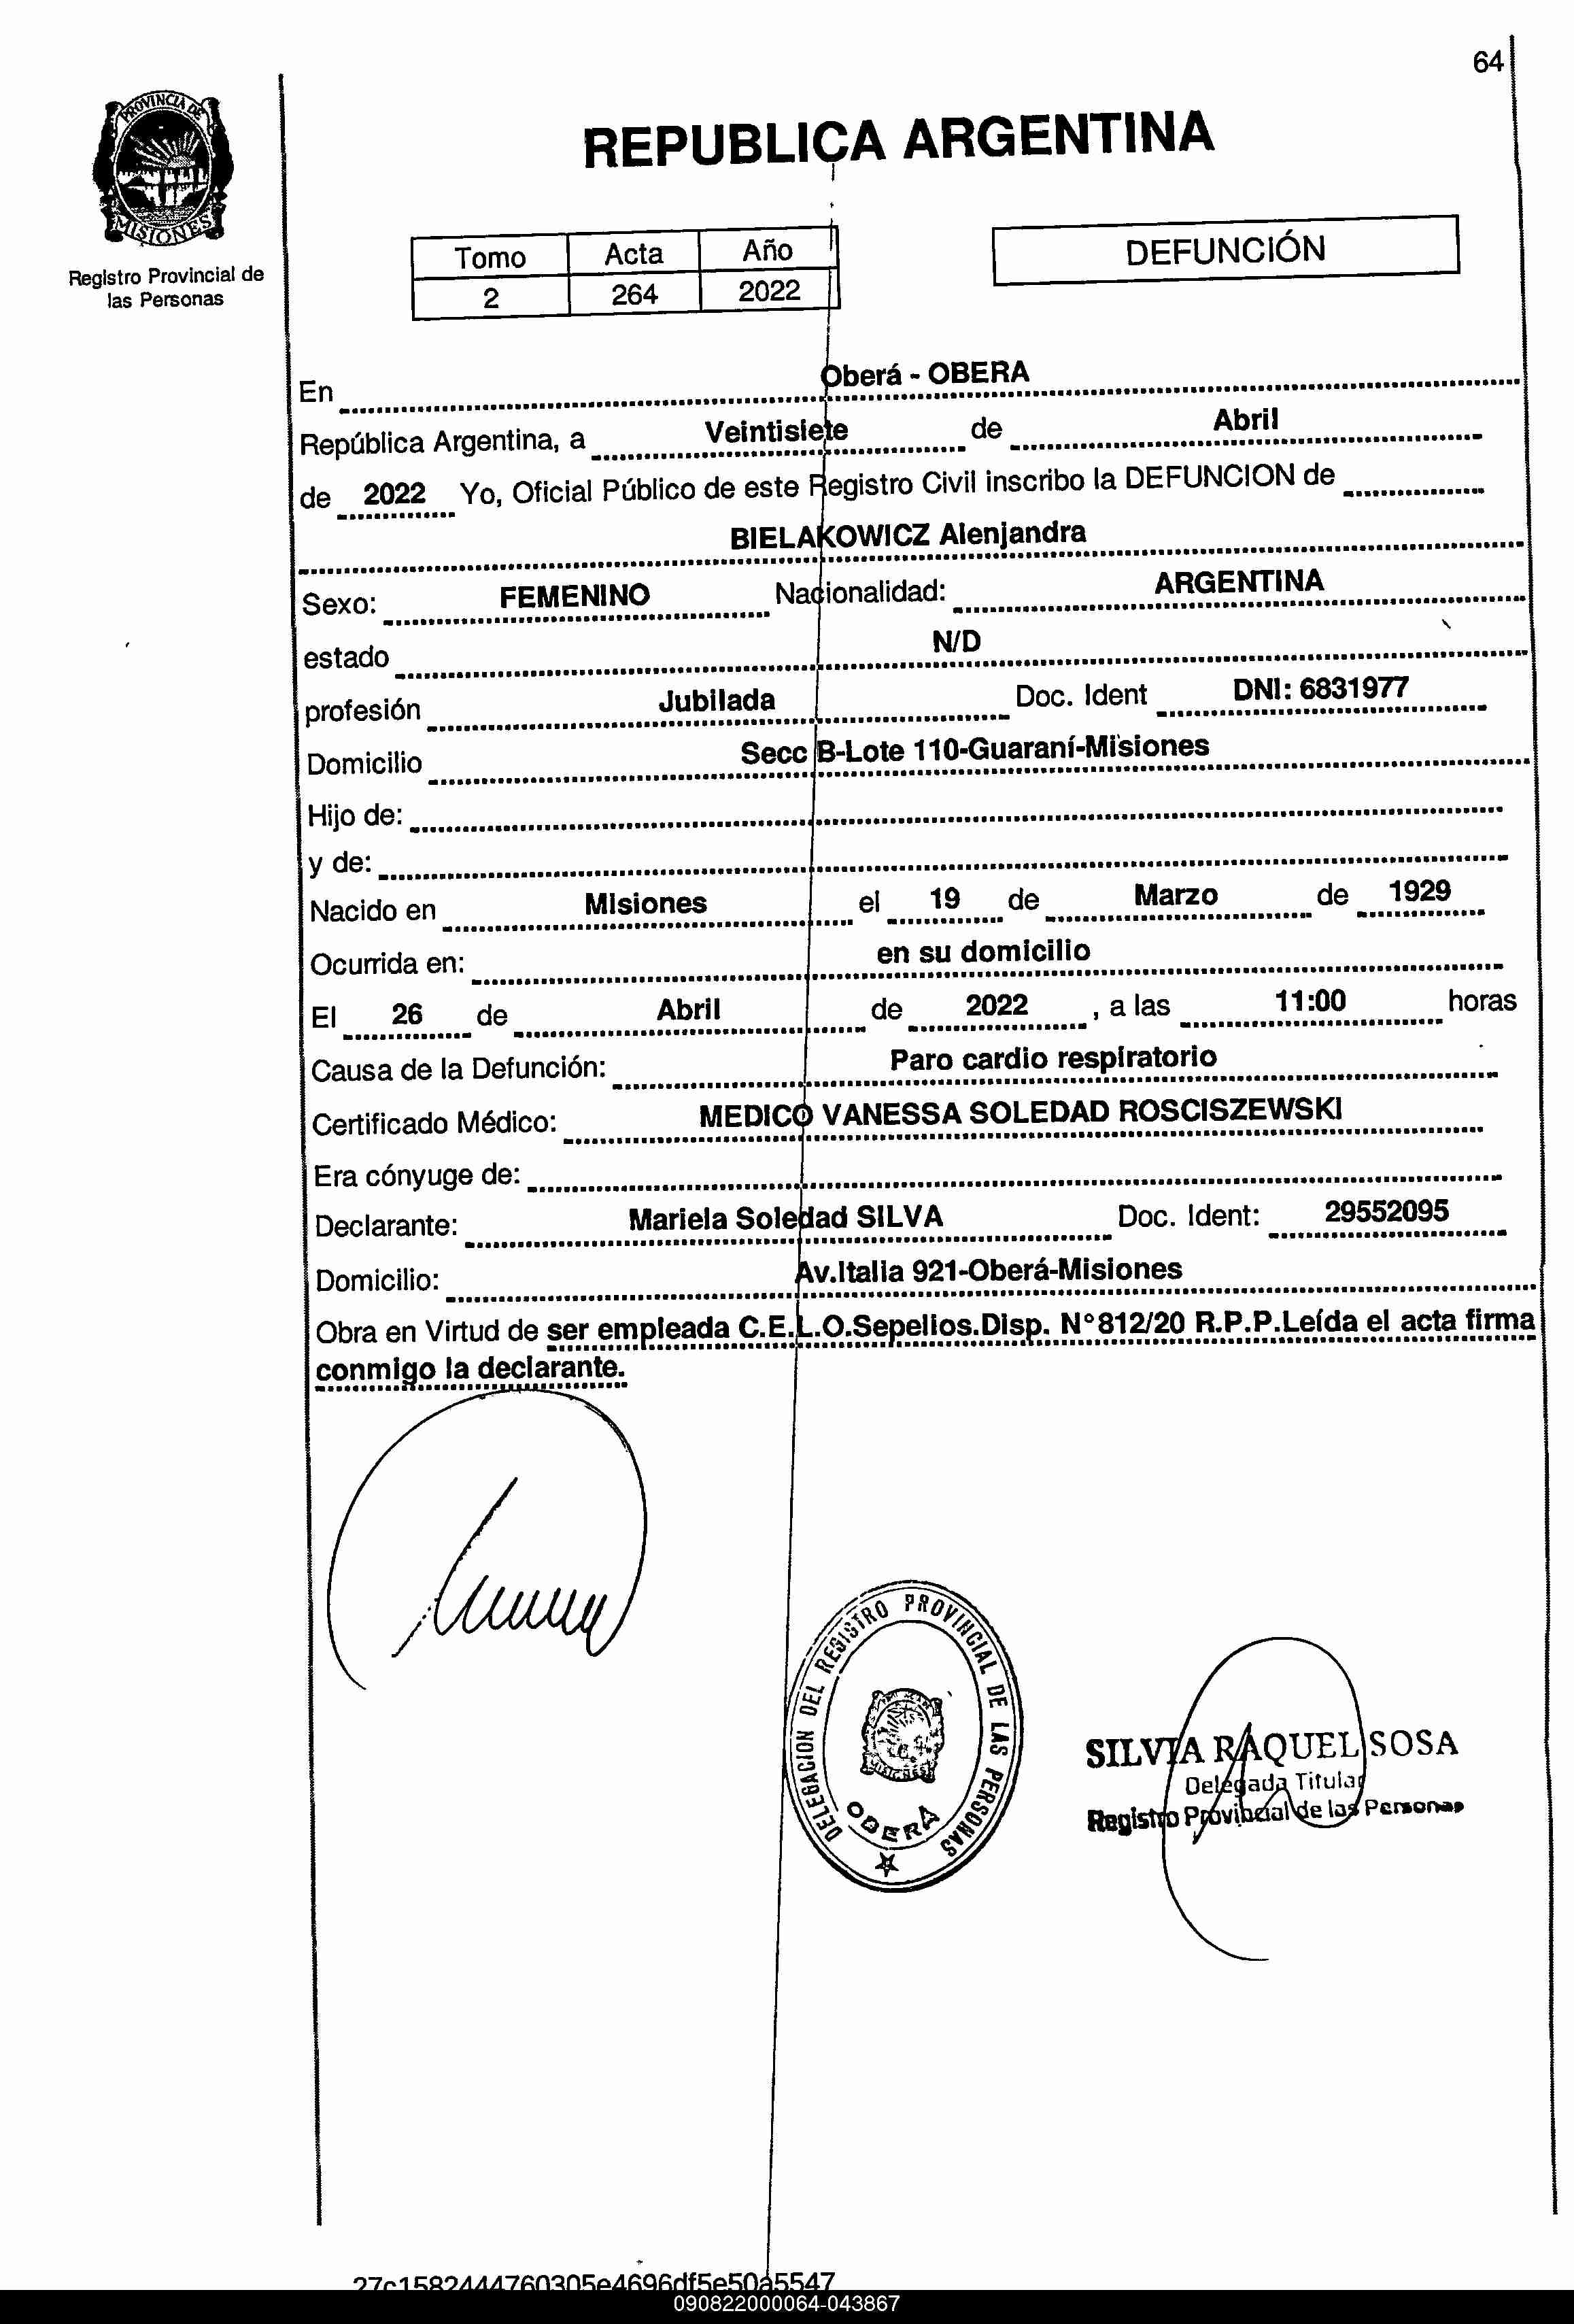 64
PROVINCIA DE
MISIONES
Registro Provincial de
las Personas
REPUBLICA ARGENTINA
Tomo Acta Año
2 264 2022
DEFUNCIÓN
En Oberá - OBERA
República Argentina, a Veintisiete de Abril
de 2022 Yo, Oficial Público de este Registro Civil inscribo la DEFUNCION de
BIELAKOWICZ Alenjandra
Sexo: FEMENINO Nacionalidad: ARGENTINA
estado N/D
profesión Jubilada Doc. Ident DNI: 6831977
Domicilio Secc B-Lote 110-Guaraní-Misiones
Hijo de:
y de:
Nacido en Misiones el 19 de Marzo de 1929
Ocurrida en: en su domicilio
El 26 de Abril de 2022 , a las 11:00 horas
Causa de la Defunción: Paro cardio respiratorio
Certificado Médico: MEDICO VANESSA SOLEDAD ROSCISZEWSKI
Era cónyuge de:
Declarante: Mariela Soledad SILVA Doc. Ident: 29552095
Domicilio: Av.Italia 921-Oberá-Misiones
Obra en Virtud de ser empleada C.E.L.O.Sepelios.Disp. N°812/20 R.P.P.Leída el acta firma
conmigo la declarante.
DELEGACION DEL REGISTRO PROVINCIAL DE LAS PERSONAS
OBERÁ
SILVIA RAQUEL SOSA
Delegada Titular
Registro Provincial de las Personas
27c1582444760305e4696df5e50a5547
090822000064-043867